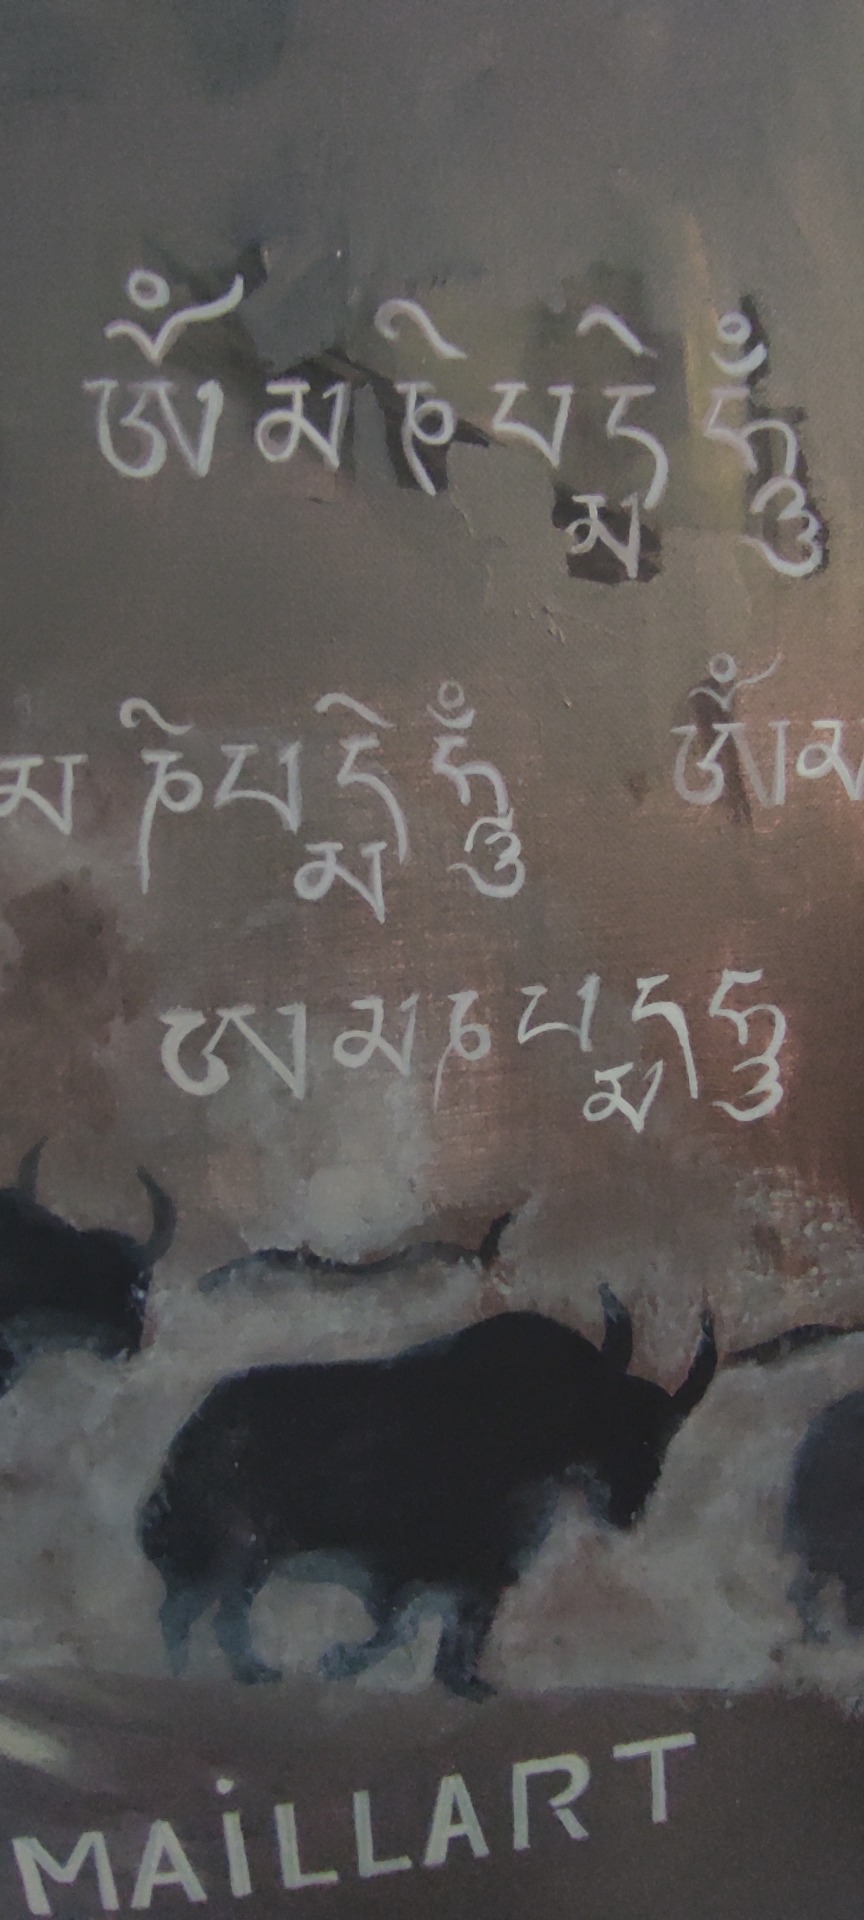 ཨོཾ མ ཎི པ དྨེ ཧཱུྃ
མ ཎི པ དྨེ ཧཱུྃ ཨོཾ མ
ཨ མ ཎ པ དྨ ཧཱུ
MAiLLART